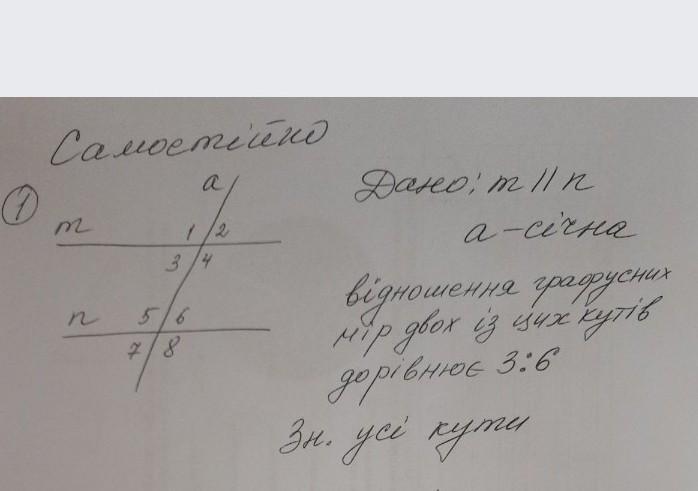 Самостійно
1
a
m
1 2
3 4
n
5 6
7 8
Дано: m || n
a – січна
відношення градусних
мір двох із цих кутів
дорівнює 3:6
Зн. усі кути